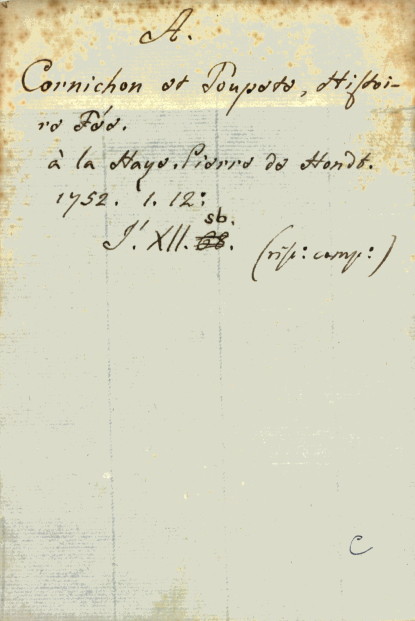 A.
Cornichon et Poupete, Histoi-
re Fée.
à la Haye. Pierre de Hondt.
1752. 1. 12:
sb.
J. XII. 68.
(risp: camp:)
C